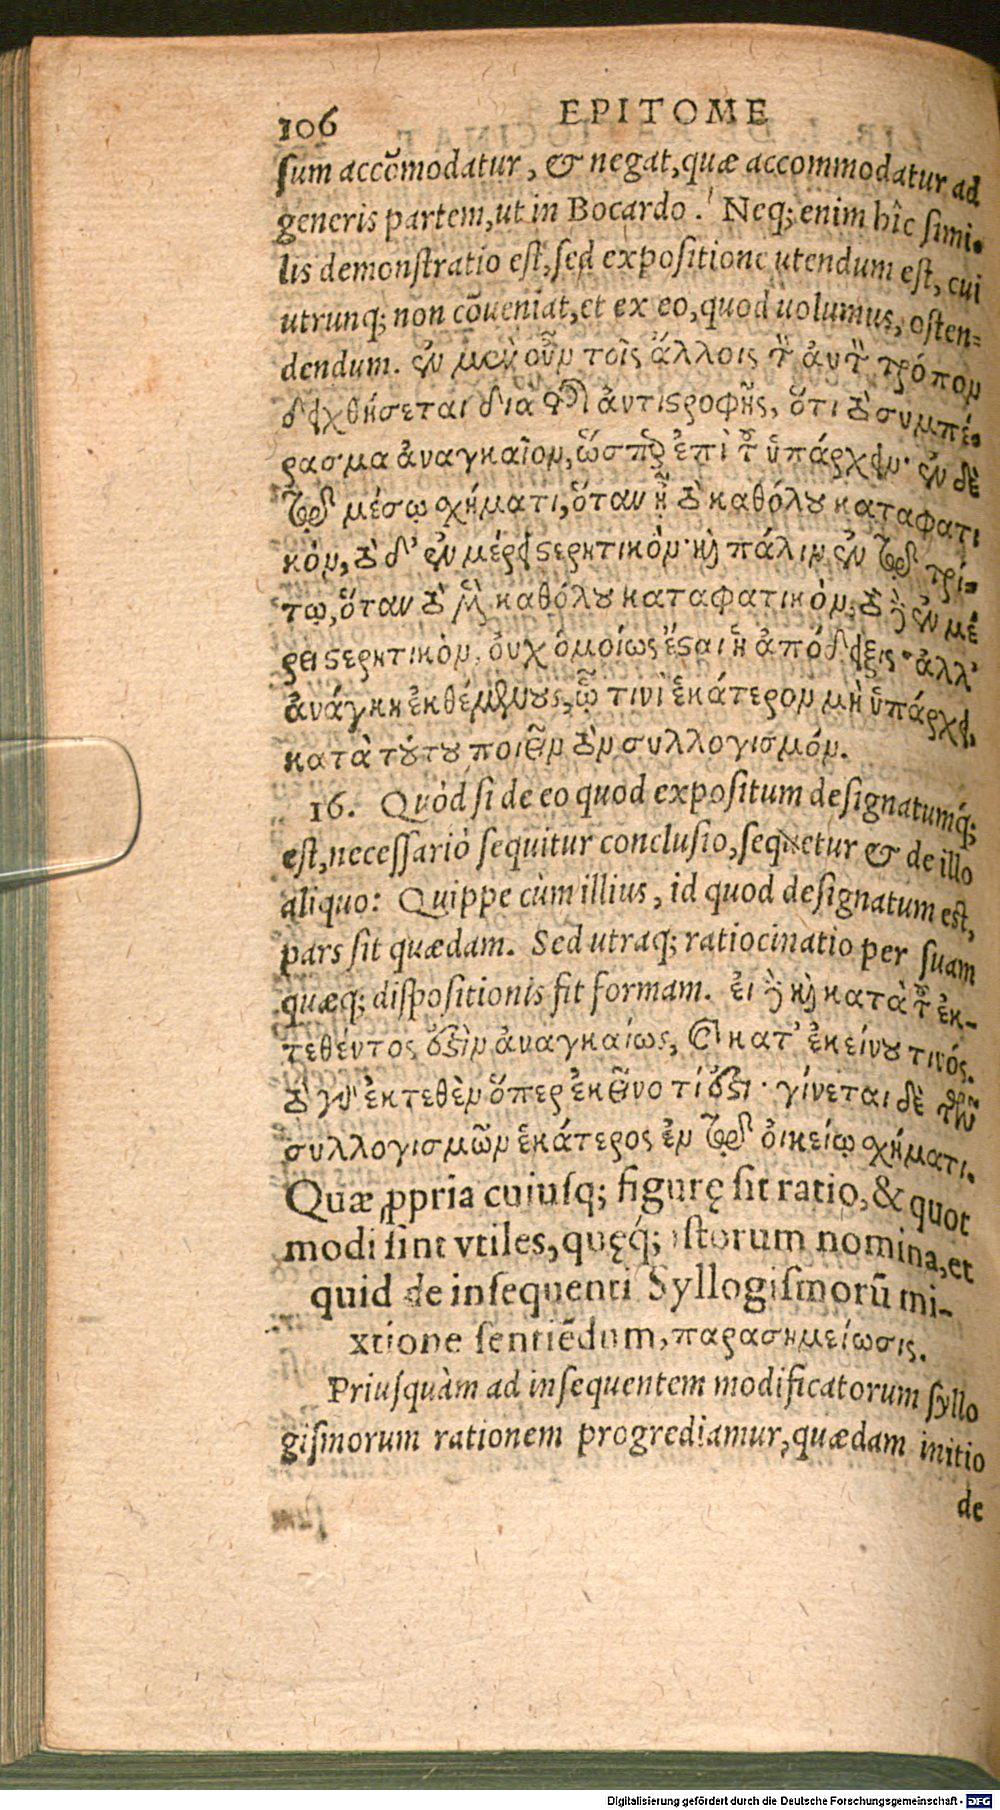 106 EPITOME
sum accõmodatur, & negat, quæ accommodatur ad
generis partem, ut in Bocardo. Neq; enim hîc simi-
lis demonstratio est, sed expositione utendum est, cui
utrunq; non cõueniat, et ex eo, quod uolumus, osten-
dendum. ἐν μὲν οὖν τοῖς ἄλλοις τὸν αὐτὸν τρόπον
δειχθήσεται διὰ τῆς ἀντιστροφῆς, ὅτι τὸ συμπέ-
ρασμα ἀναγκαῖον, ὥσπερ ἐπὶ τοῦ ὑπάρχειν· ἐν δὲ
τῷ μέσῳ σχήματι, ὅταν ᾖ τὸ καθόλου καταφατι
κὸν, τὸ δ' ἐν μέρει στερητικὸν· καὶ πάλιν ἐν τῷ τρί-
τῳ, ὅταν τὸ μὲν καθόλου καταφατικὸν, τὸ δὲ ἐν μέ
ρει στερητικὸν, οὐχ ὁμοίως ἔσται ἡ ἀπόδειξις· ἀλλ'
ἀνάγκη ἐκθεμένους, ᾧ τινὶ ἑκάτερον μὴ ὑπάρχει,
κατὰ τούτου ποιεῖν τὸν συλλογισμόν.
16. Quòd si de eo quod expositum designatumq́;
est, necessariò sequitur conclusio, sequetur & de illo
aliquo: Quippe cùm illius, id quod designatum est,
pars sit quædam. Sed utraq; ratiocinatio per suam
quæq; dispositionis fit formam. εἰ δὲ καὶ κατὰ τοῦ ἐκ-
τεθέντος ἐστὶν ἀναγκαίως, καὶ κατ' ἐκείνου τινός.
τὸ γὰρ ἐκτεθὲν ὅπερ ἐκεῖνο τί ἐστι· γίνεται δὲ τῶν
συλλογισμῶν ἑκάτερος ἐν τῷ οἰκείῳ σχήματι.
Quæ ꝓpria cuiusq; figurę sit ratio, & quot
modi sint vtiles, quęq́; istorum nomina, et
quid de insequenti Syllogismorũ mi-
xtione sentiẽdum, παρασημείωσις.
Priusquàm ad insequentem modificatorum syllo
gismorum rationem progrediamur, quædam initio
de
Digitalisierung gefördert durch die Deutsche Forschungsgemeinschaft - DFG